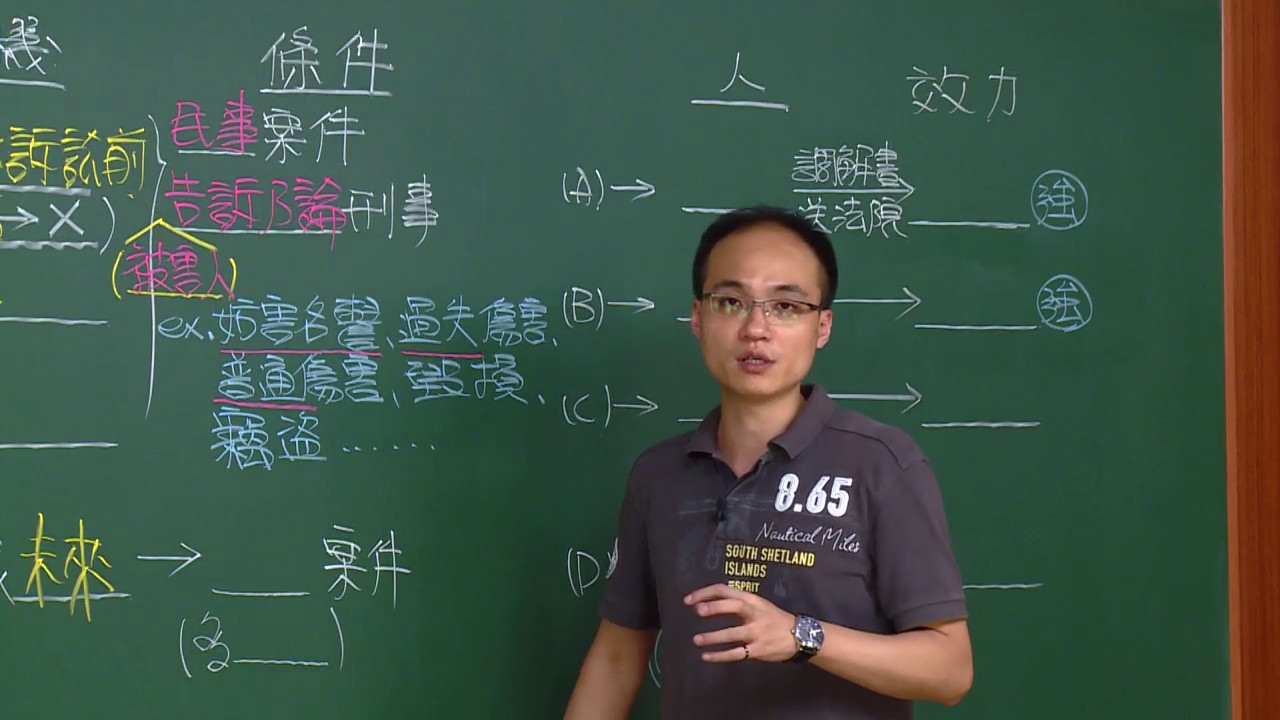 機
條件
人
效力
訴訟前
民事案件
告訴乃論刑事
→ X )
(被害人)
ex. 妨害名譽、過失傷害、
普通傷害、毀損、
竊盜......
(A)→
調解書
送法院
強
(B)→
強
(C)→
(D)
未來 → ____ 案件
(多____)
8.65
Nautical Miles
SOUTH SHETLAND
ISLANDS
ESPRIT